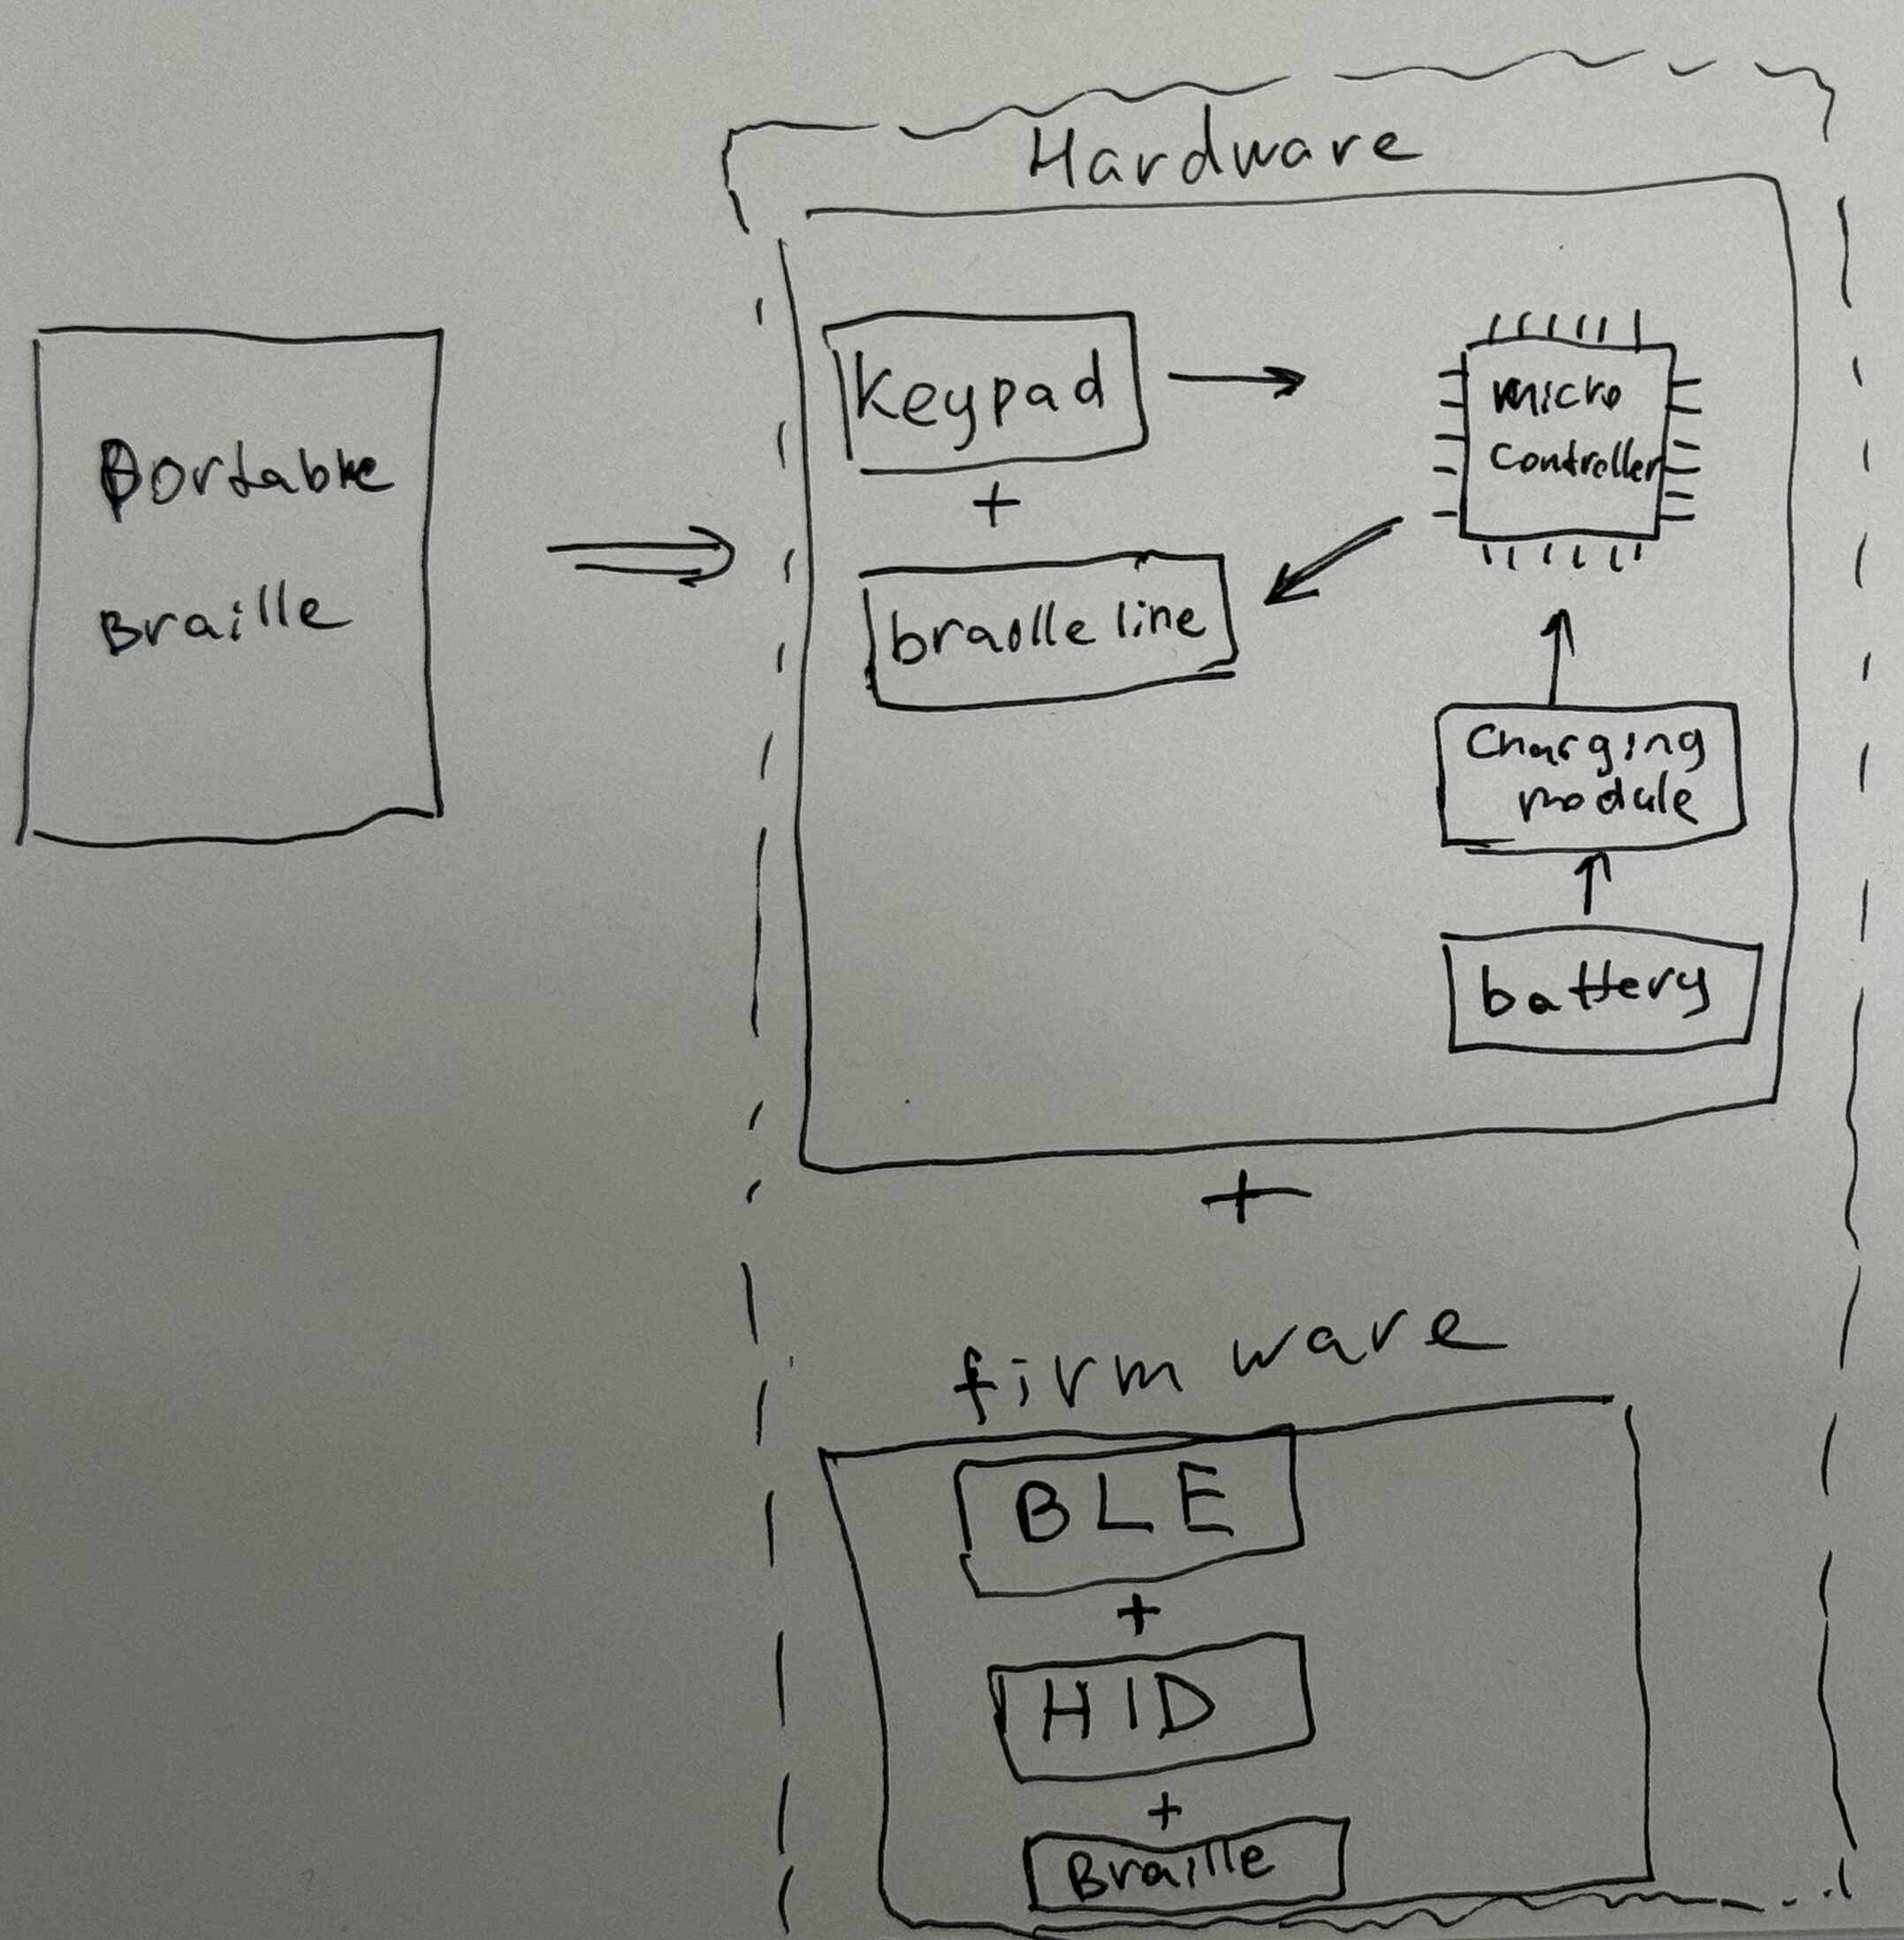 Portable
Braille
Hardware
Keypad
+
braille line
micro
controller
Charging
module
battery
+
firm ware
BLE
+
HID
+
Braille